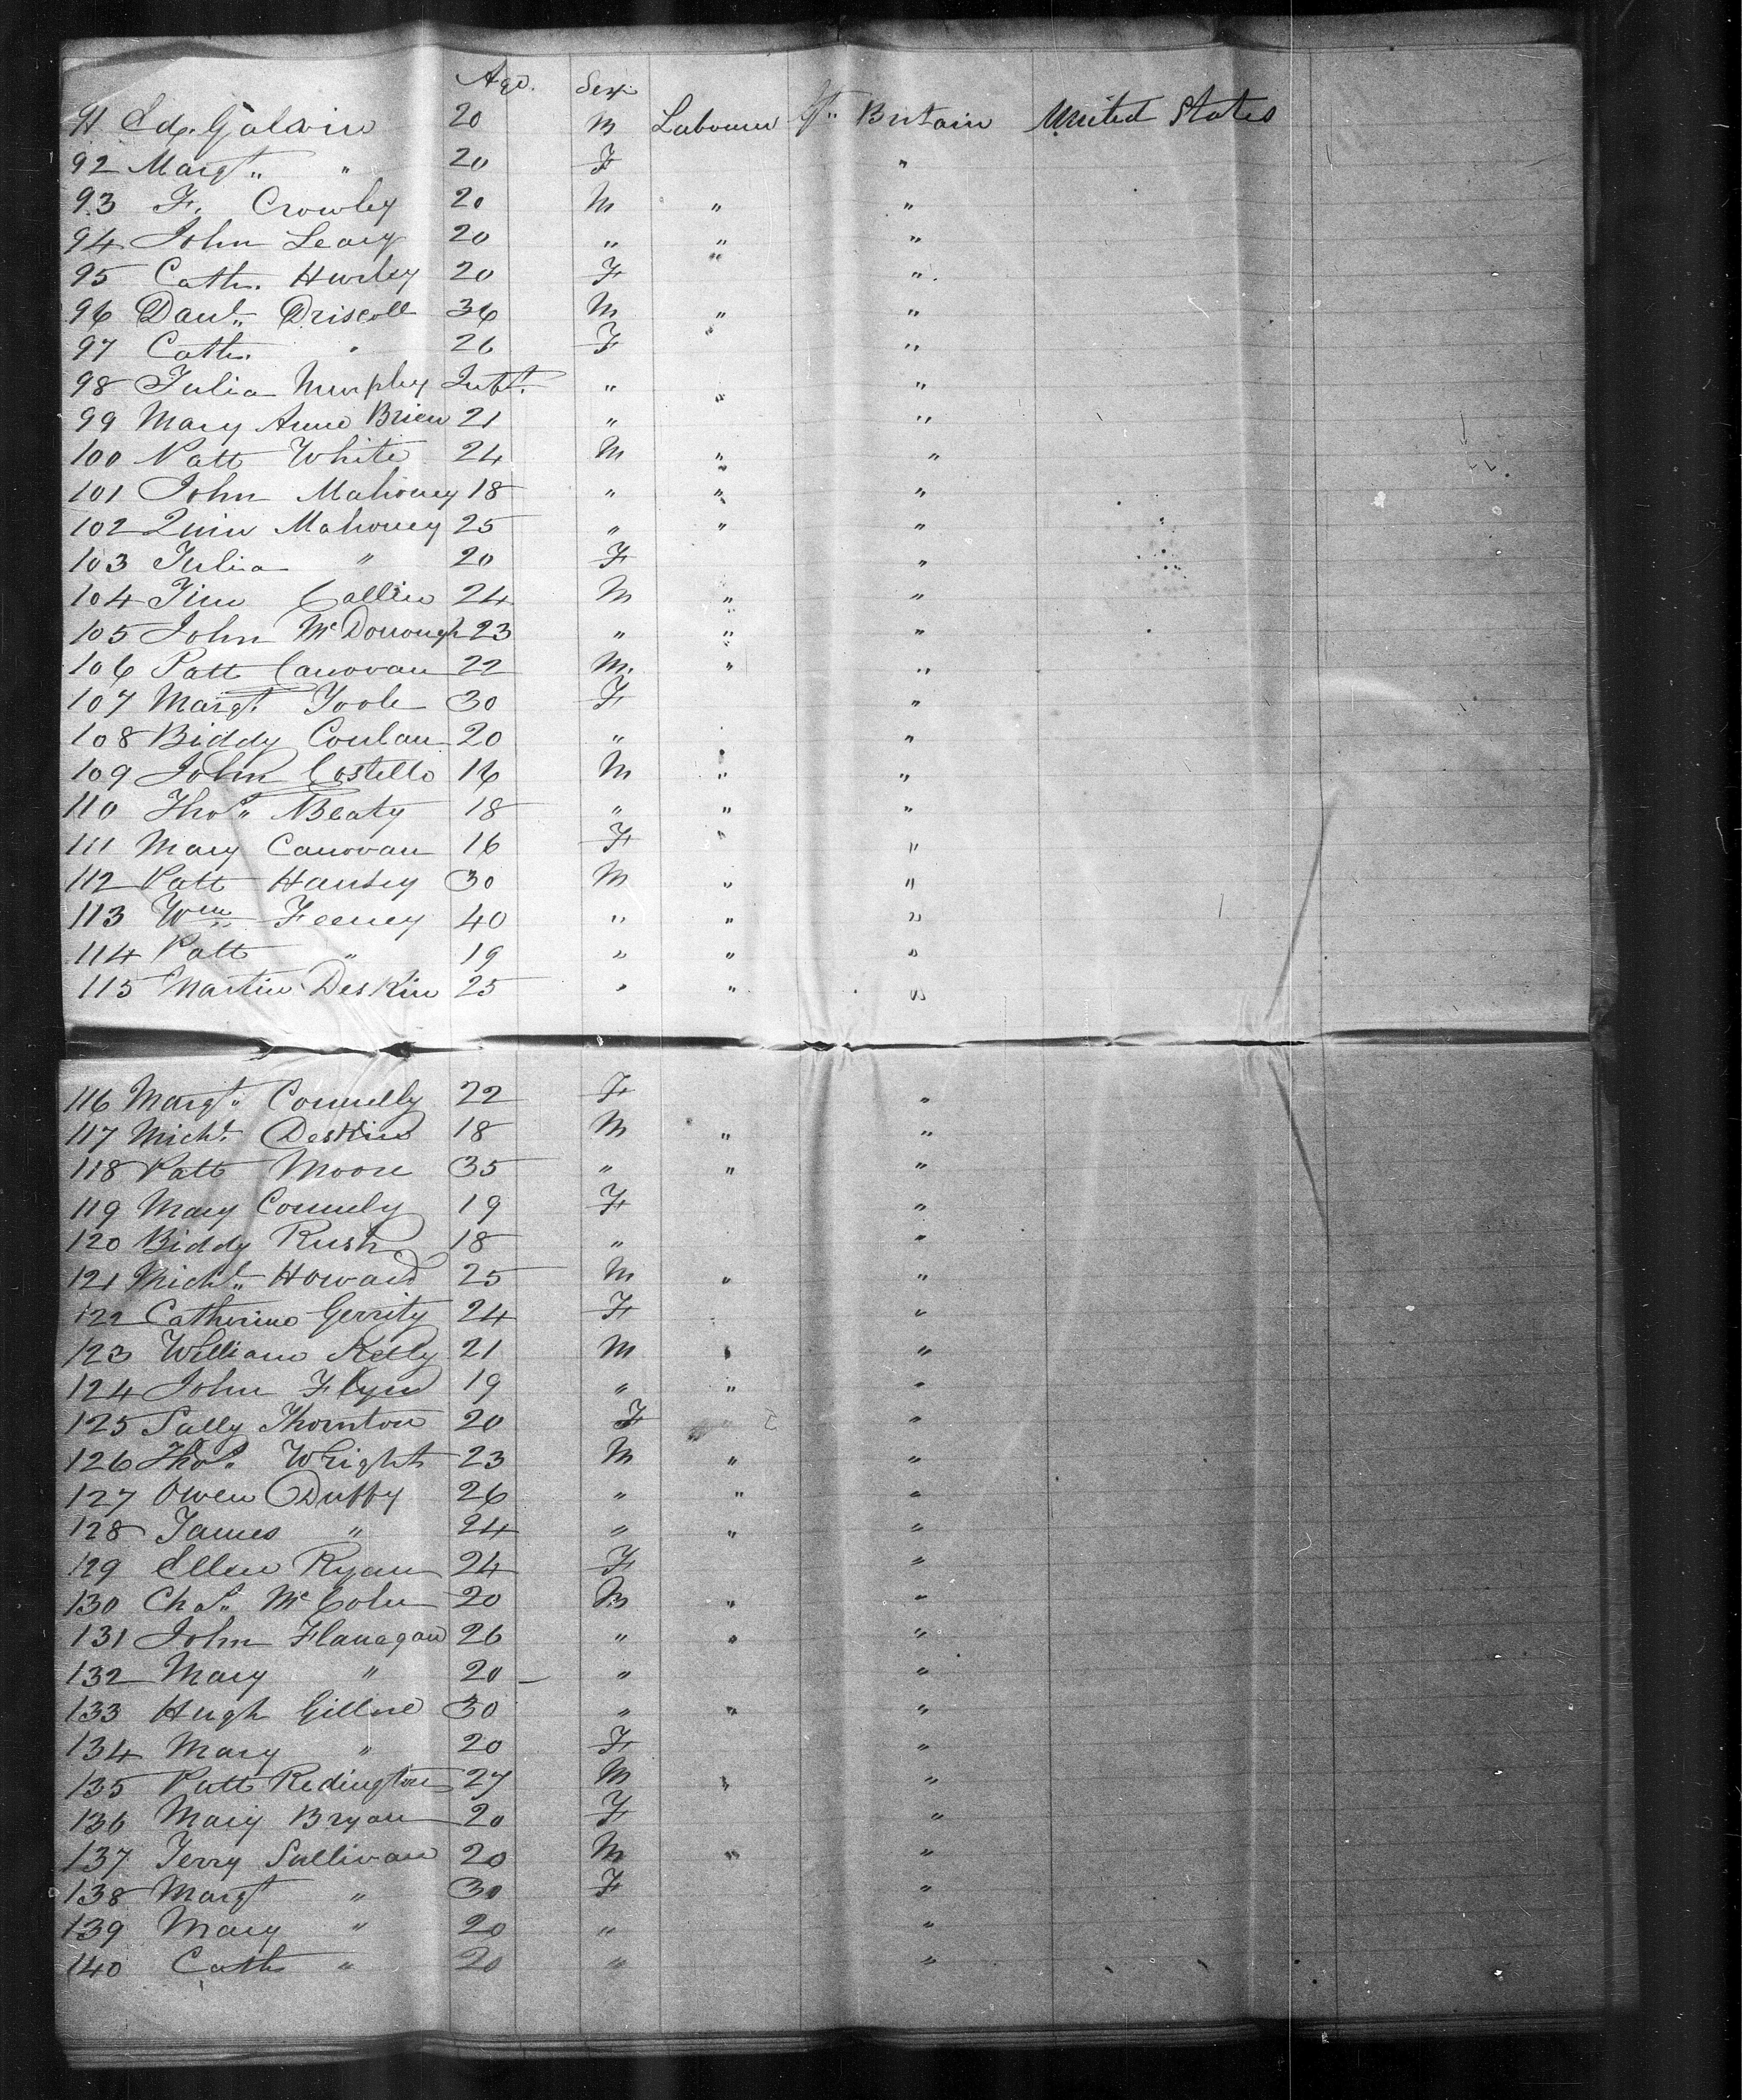 Age. Sex
91 Ed. Galvin 20 M Labourer Gt. Britain United States
92 Margt. " 20 F "
93 F. Crowley 20 M " "
94 John Leary 20 " " "
95 Cath. Hurley 20 F " "
96 Danl. Driscoll 36 M " "
97 Cath. " 26 F "
98 Julia Murphy Inft. " "
99 Mary Anne Brien 21 " "
100 Patt White 24 M " "
101 John Mahoney 18 " " "
102 Mahoney 25 " " "
103 Julia " 20 F "
104 Tim Collins 24 M " "
105 John McDonough 23 " " "
106 Patt Canovan 22 M. " "
107 Margt. Toole 30 F "
108 Biddy Conlan 20 " "
109 John Costello 16 M " "
110 Thos. Beaty 18 " " "
111 Mary Canovan 16 F "
112 Patt 30 M " "
113 Wm. Feeney 40 " " "
114 Patt " 19 " " "
115 Martin Deskin 25 " " "
116 Margt. Connelly 22 F "
117 Michl. Deskin 18 M " "
118 Patt Moore 35 " " "
119 Mary Connely 19 F "
120 Biddy Rush 18 " "
121 Michl. Howard 25 M " "
122 Catherine Gerrity 24 F "
123 William Kelly 21 M " "
124 John Flynn 19 " " "
125 Sally Thornton 20 F "
126 Thos. Wright 23 M " "
127 Owen Duffy 26 " " "
128 James " 24 " " "
129 Ellen Ryan 24 F "
130 Chas. 20 M " "
131 John Flanegan 26 " " "
132 Mary " 20 " "
133 Hugh 30 " " "
134 Mary " 20 F "
135 Patt Redington 27 M " "
136 Mary Bryan 20 F "
137 Jerry Sullivan 20 M " "
138 Margt " 30 F "
139 Mary " 20 " "
140 Cath " 20 " "